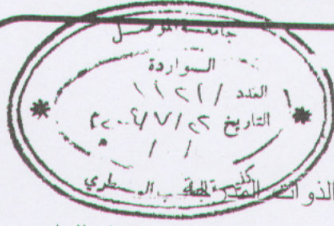 جامعة الموصل
الواردة
العدد / ١١٢١
التاريخ ٢٢/٧/٢٠٠٤
كلية الطب البيطري
الذوات